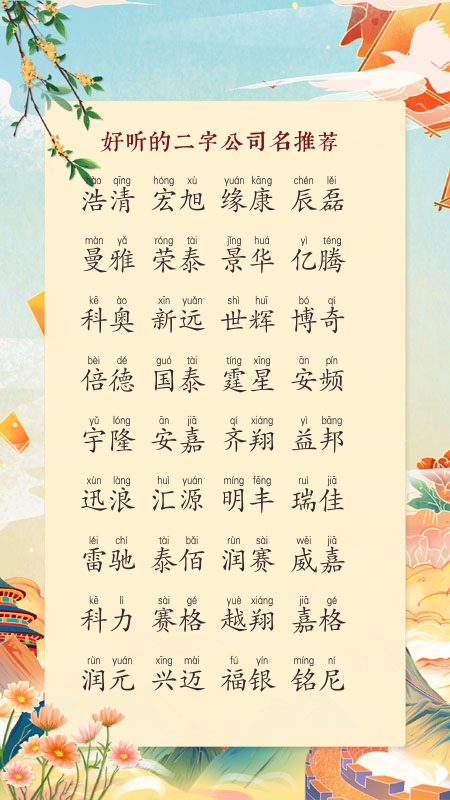 好听的二字公司名推荐
hào qīng hóng xù yuán kāng chén lěi
浩清 宏旭 缘康 辰磊
màn yǎ róng tài jǐng huá yì téng
曼雅 荣泰 景华 亿腾
kē ào xīn yuǎn shì huī bó qí
科奥 新远 世辉 博奇
bèi dé guó tài tíng xīng ān pín
倍德 国泰 霆星 安频
yǔ lóng ān jiā qí xiáng yì bāng
宇隆 安嘉 齐翔 益邦
xùn làng huì yuán míng fēng ruì jiā
迅浪 汇源 明丰 瑞佳
léi chí tài bǎi rùn sài wēi jiā
雷驰 泰佰 润赛 威嘉
kē lì sài gé yuè xiáng jiā gé
科力 赛格 越翔 嘉格
rùn yuán xīng mài fú yín míng ní
润元 兴迈 福银 铭尼